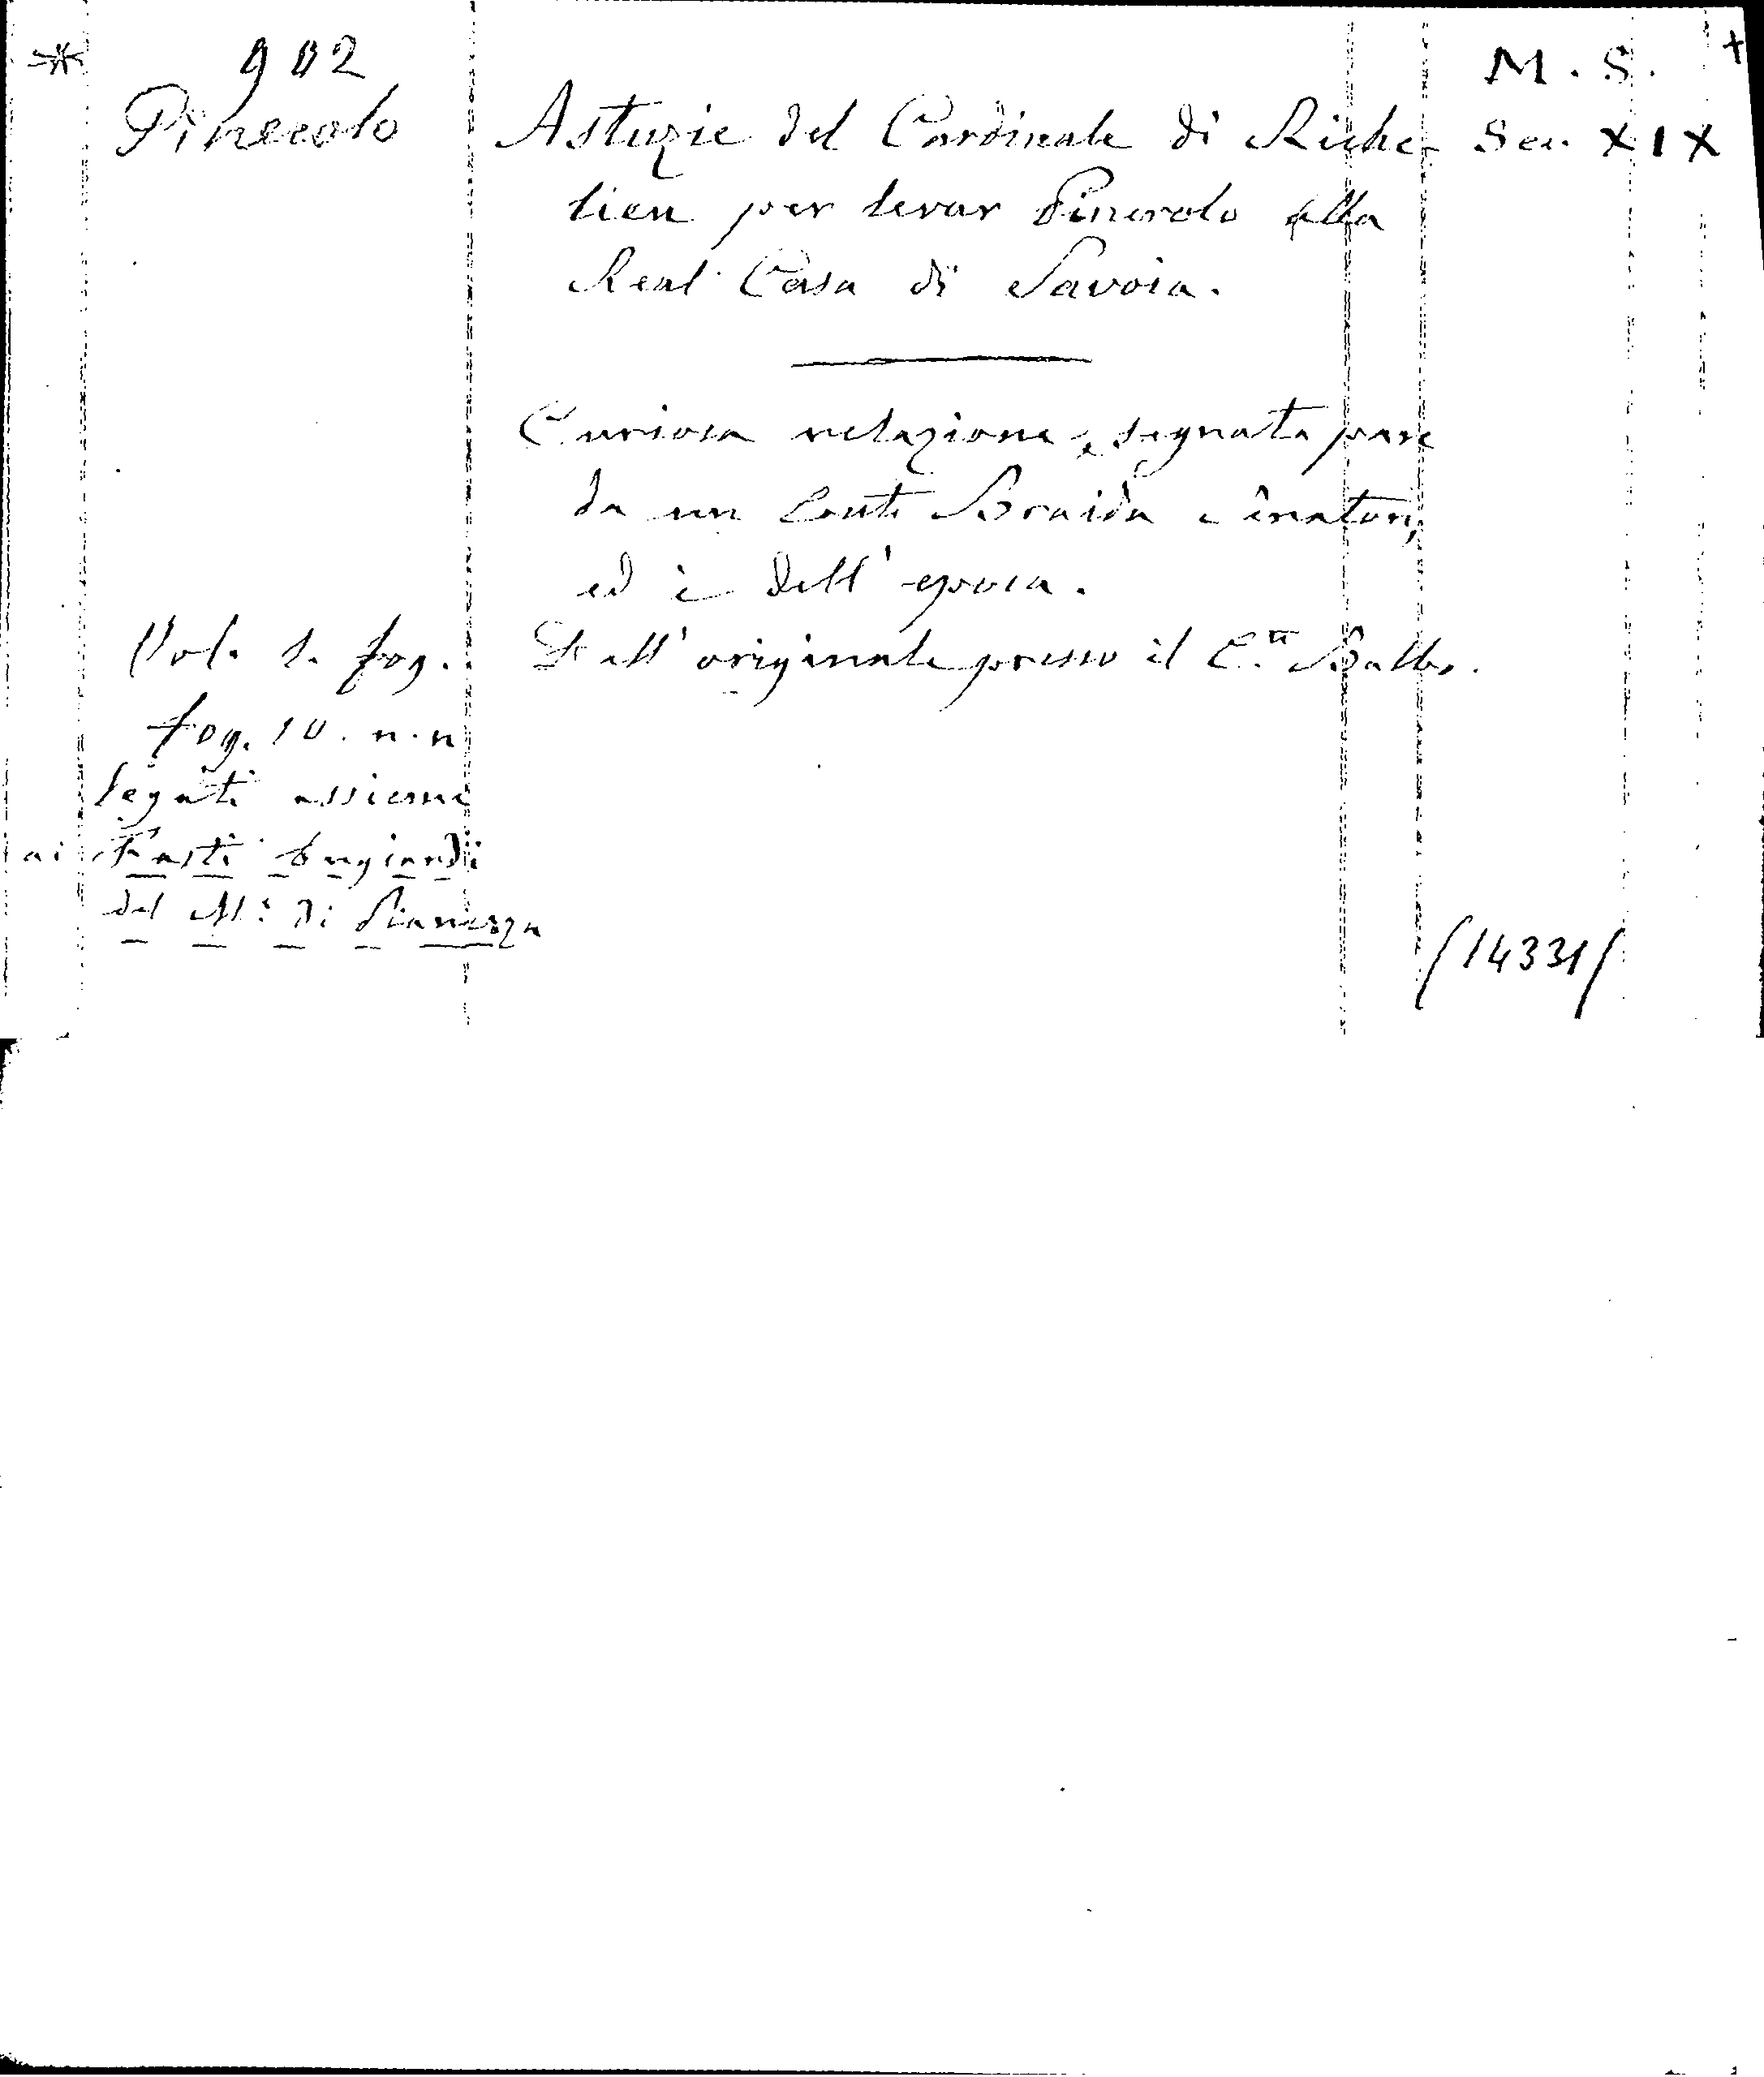 * 902 M. S. +
Pinerolo Astuzie del Cardinale di Riche- Sec. XIX
lieu per levar Pinerolo alla
Real Casa di Savoia.
Curiosa relazione, segnata pare
da un Conte Braida
ed è dell'epoca.
Vol. 1. fog. Dall'originale presso il C.te Balbo.
fog. 10. n. n
legati assieme
ai Fasti bugiardi
del M.e di Pianezza
/14331/